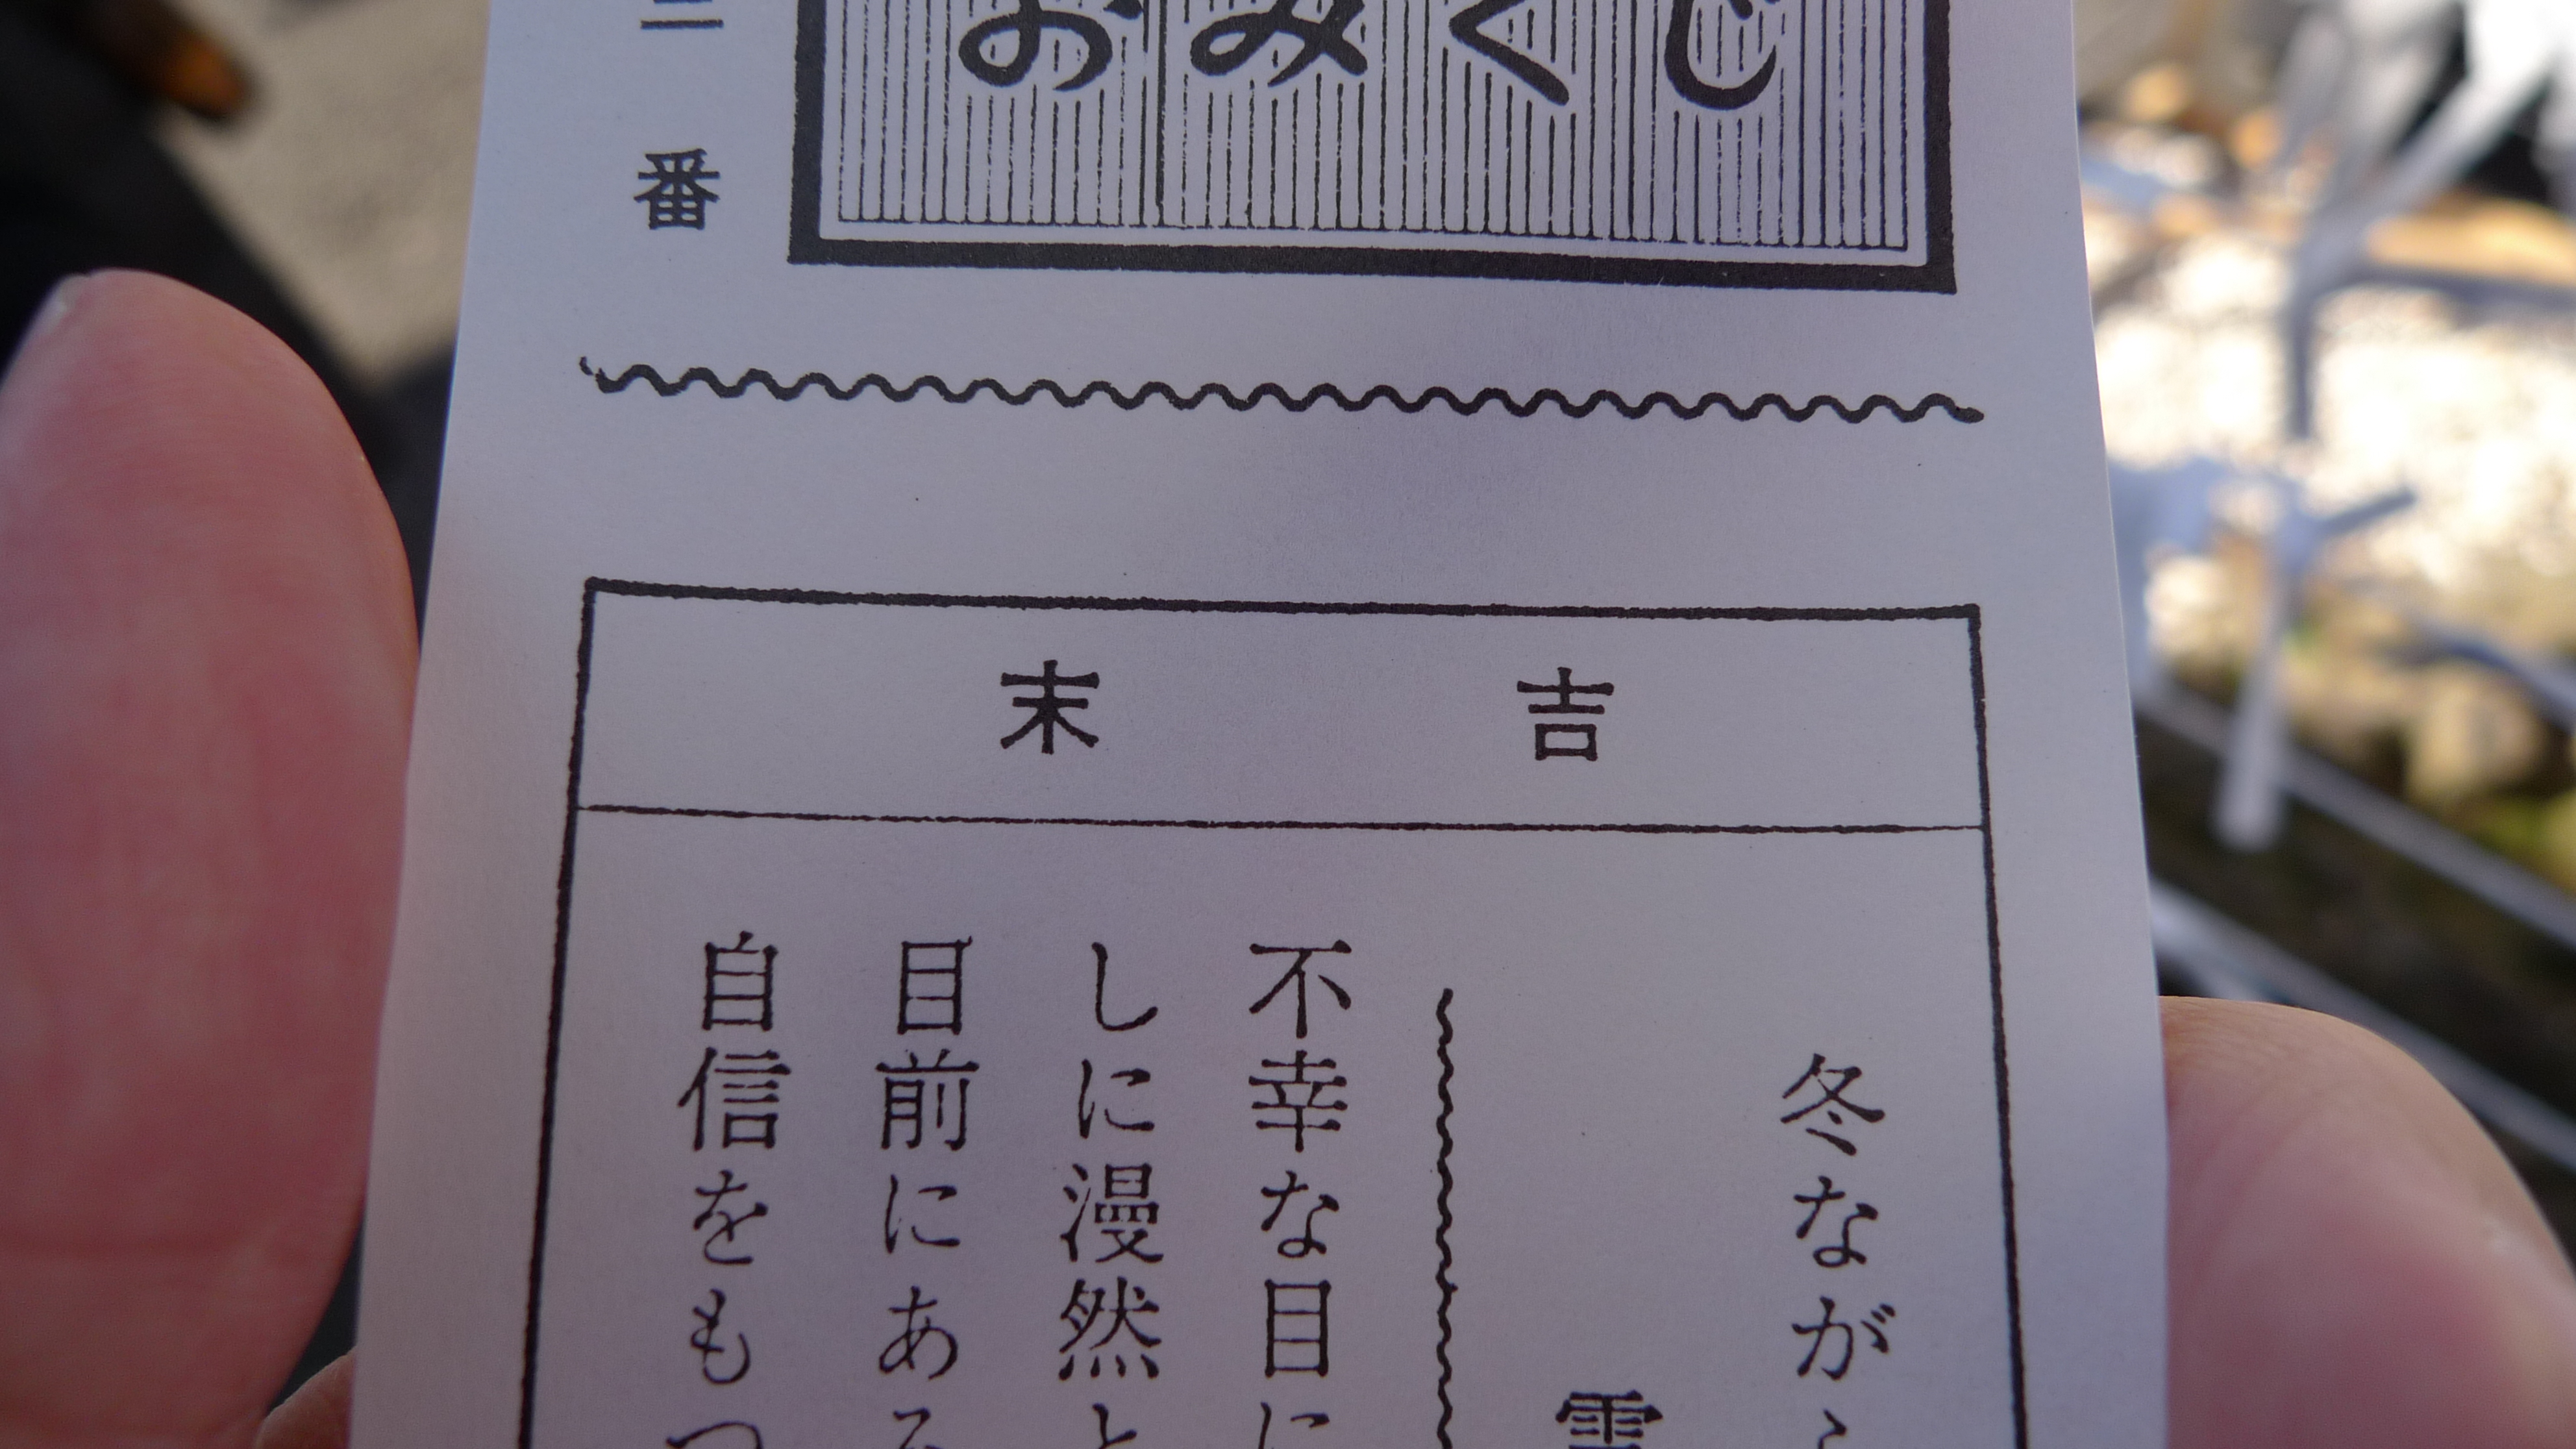 おみくじ
番
末吉
冬なが
不幸な目に
しに漫然と
目前にある
自信をも